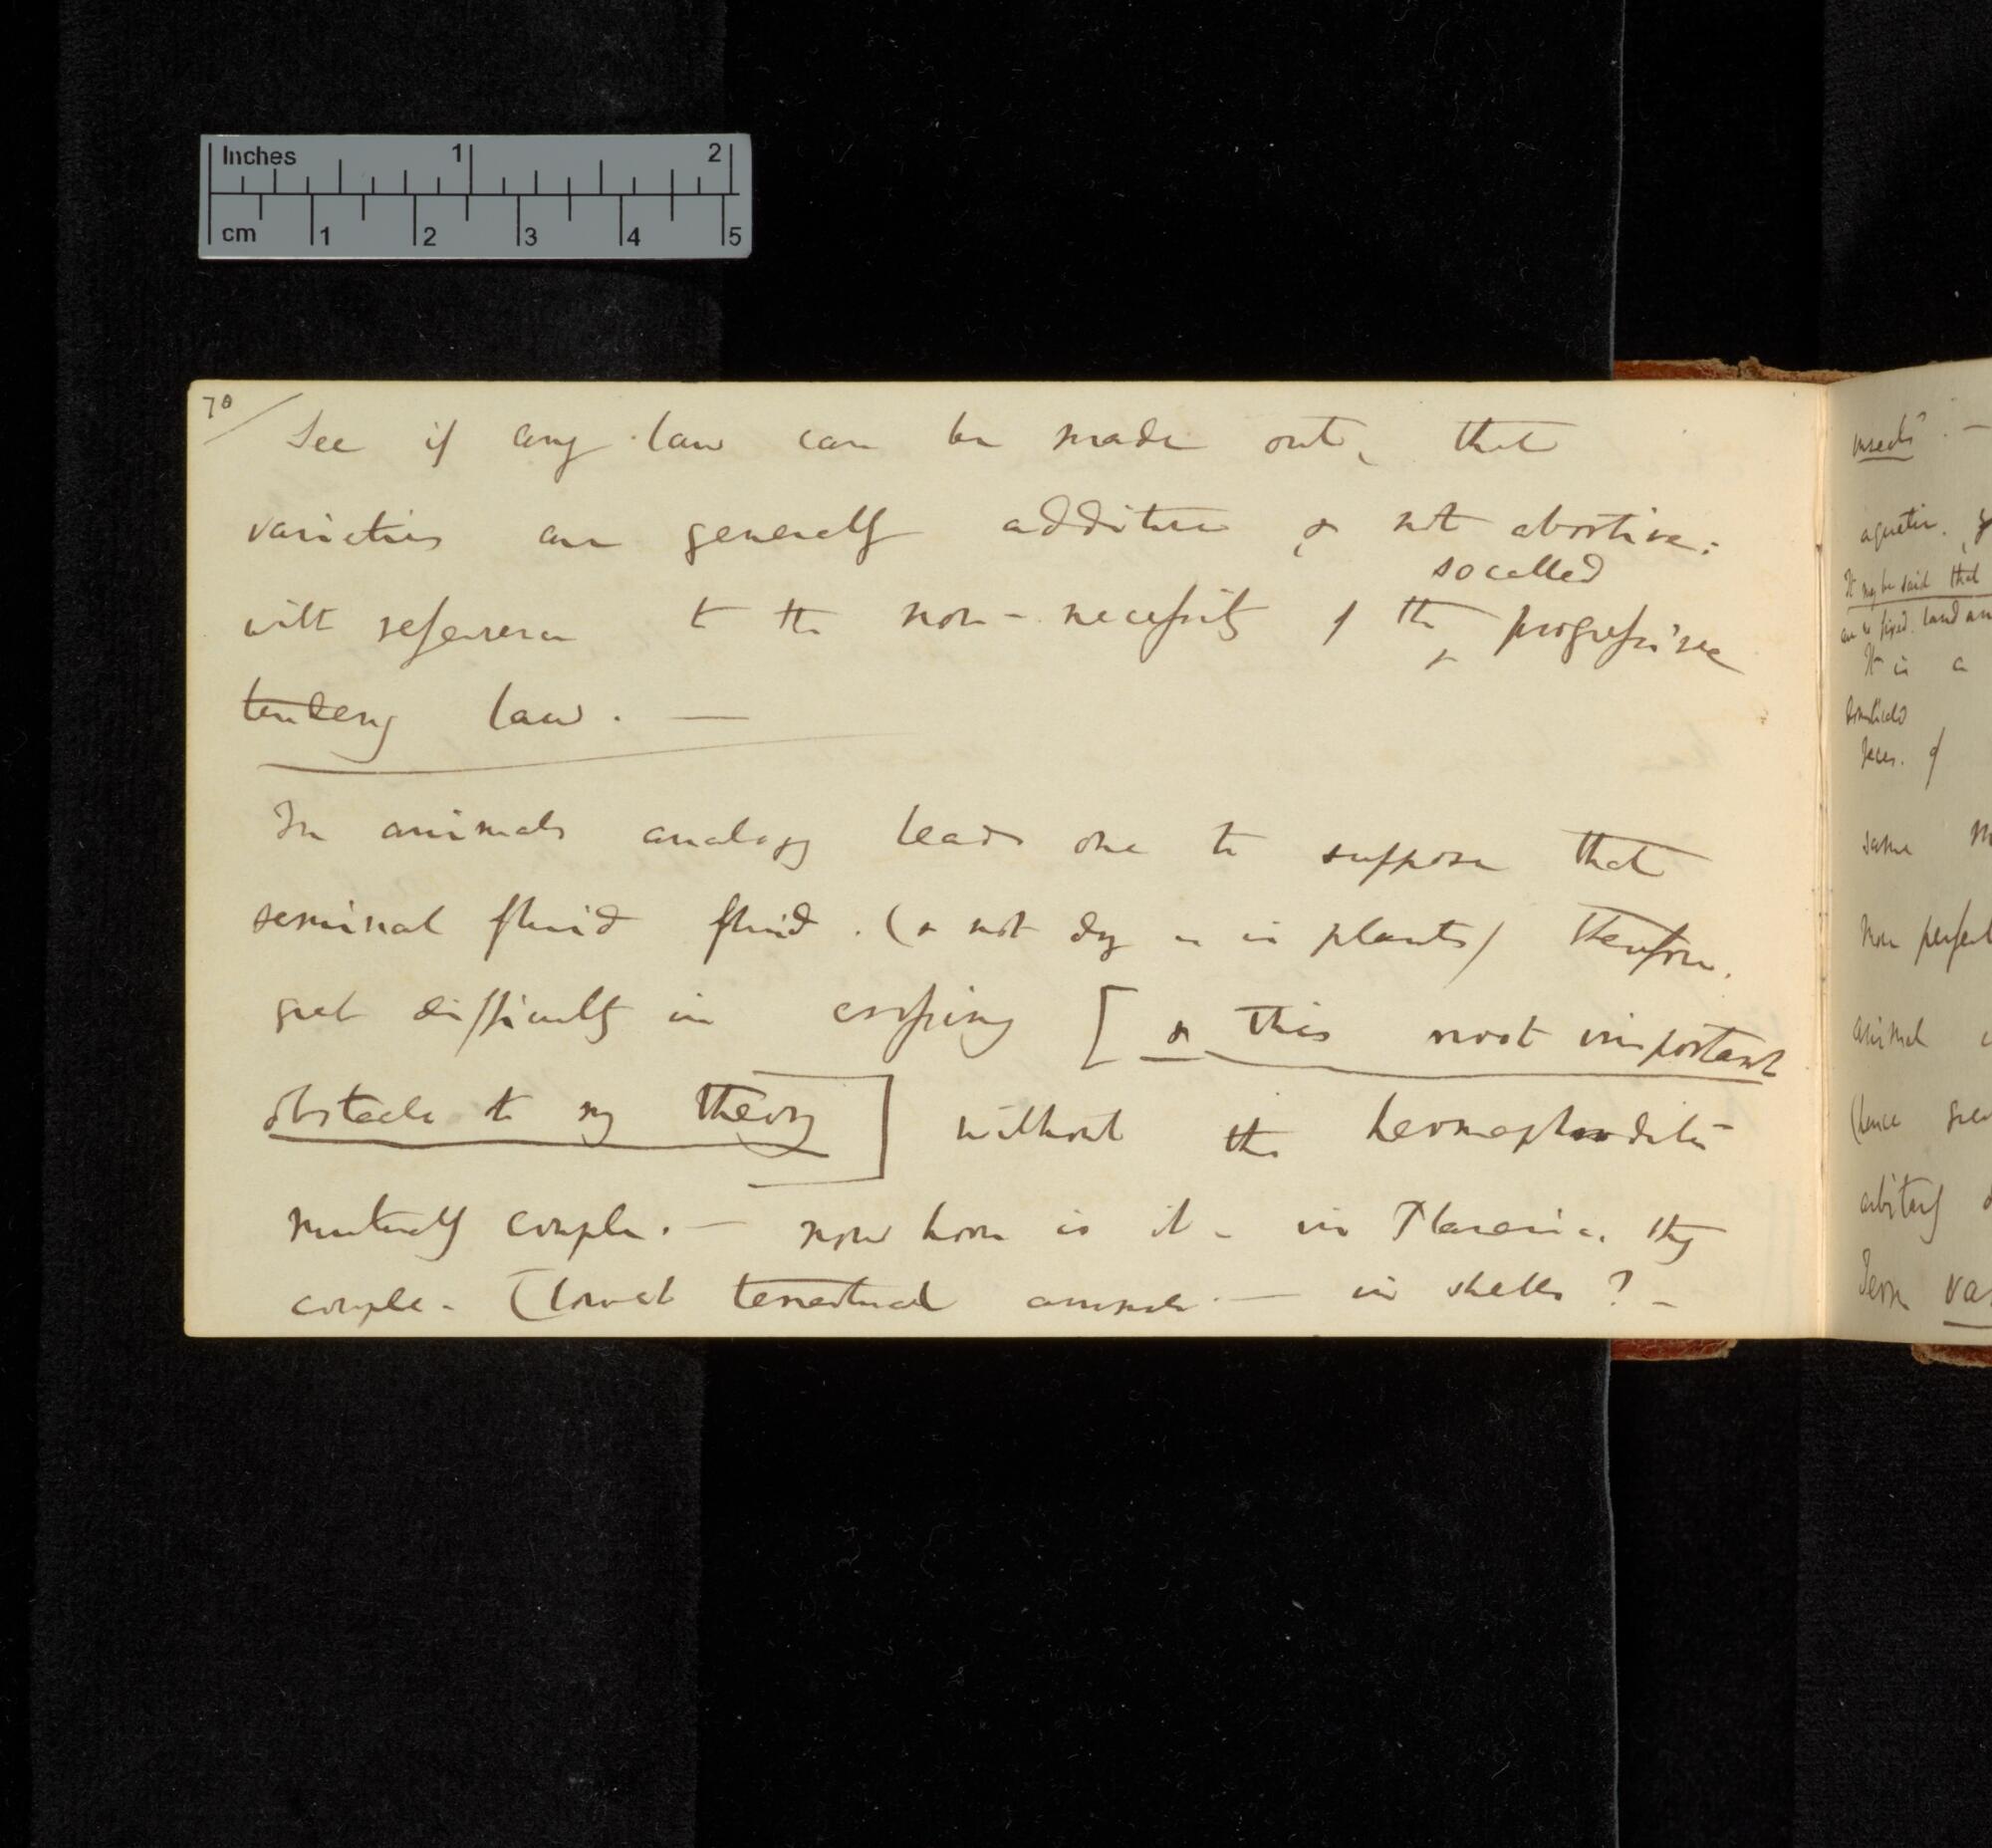 Inches 1 2
cm 1 2 3 4 5
70
See if any law can be made out, that
varieties are generally additive & not abortive:
socalled
with reference to the non-necessity of the progressive
tendency law. —
In animals analogy leads one to suppose that
seminal fluid fluid. (& not dry as in plants) therefore.
great difficulty in crossing [& this most important
obstacle to my theory] without the hermaphrodites
mutually couple. — now how is it - in Planaria. they
couple. (lowest terrestrial animals — in shells? —
insects. —
It may be said that
land an
It is a
same
Non perfect
animal
(hence
Term var